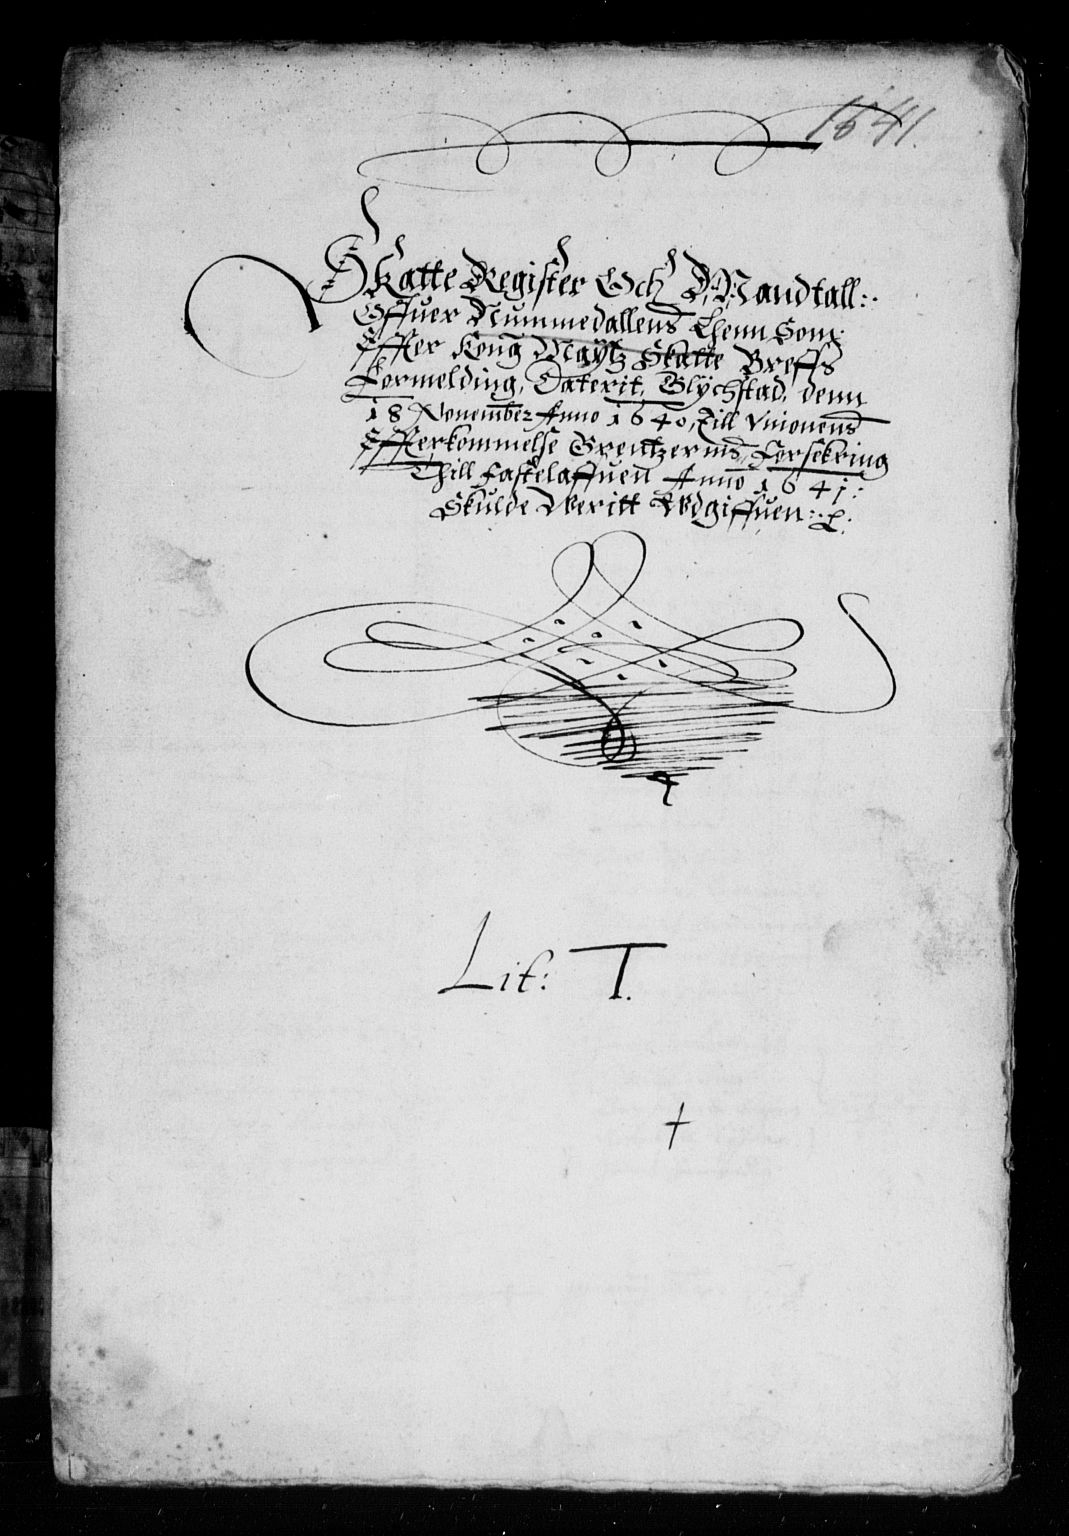 1641.
Skatte Register Och Mandtall:.
Offuer Nummedallens Lhenn Som
Effter Kong: Mgytz Skatte Breffs
Formelding, Daterit, Glychstad, denn
18 Nouember Anno 1640, Till Vnionens
Effterkommelse Grentzernis, Forsekring
Thill Fastelaffuen Anno 1641:
Skulde Weritt Wdgiffuen:
Lit: T.